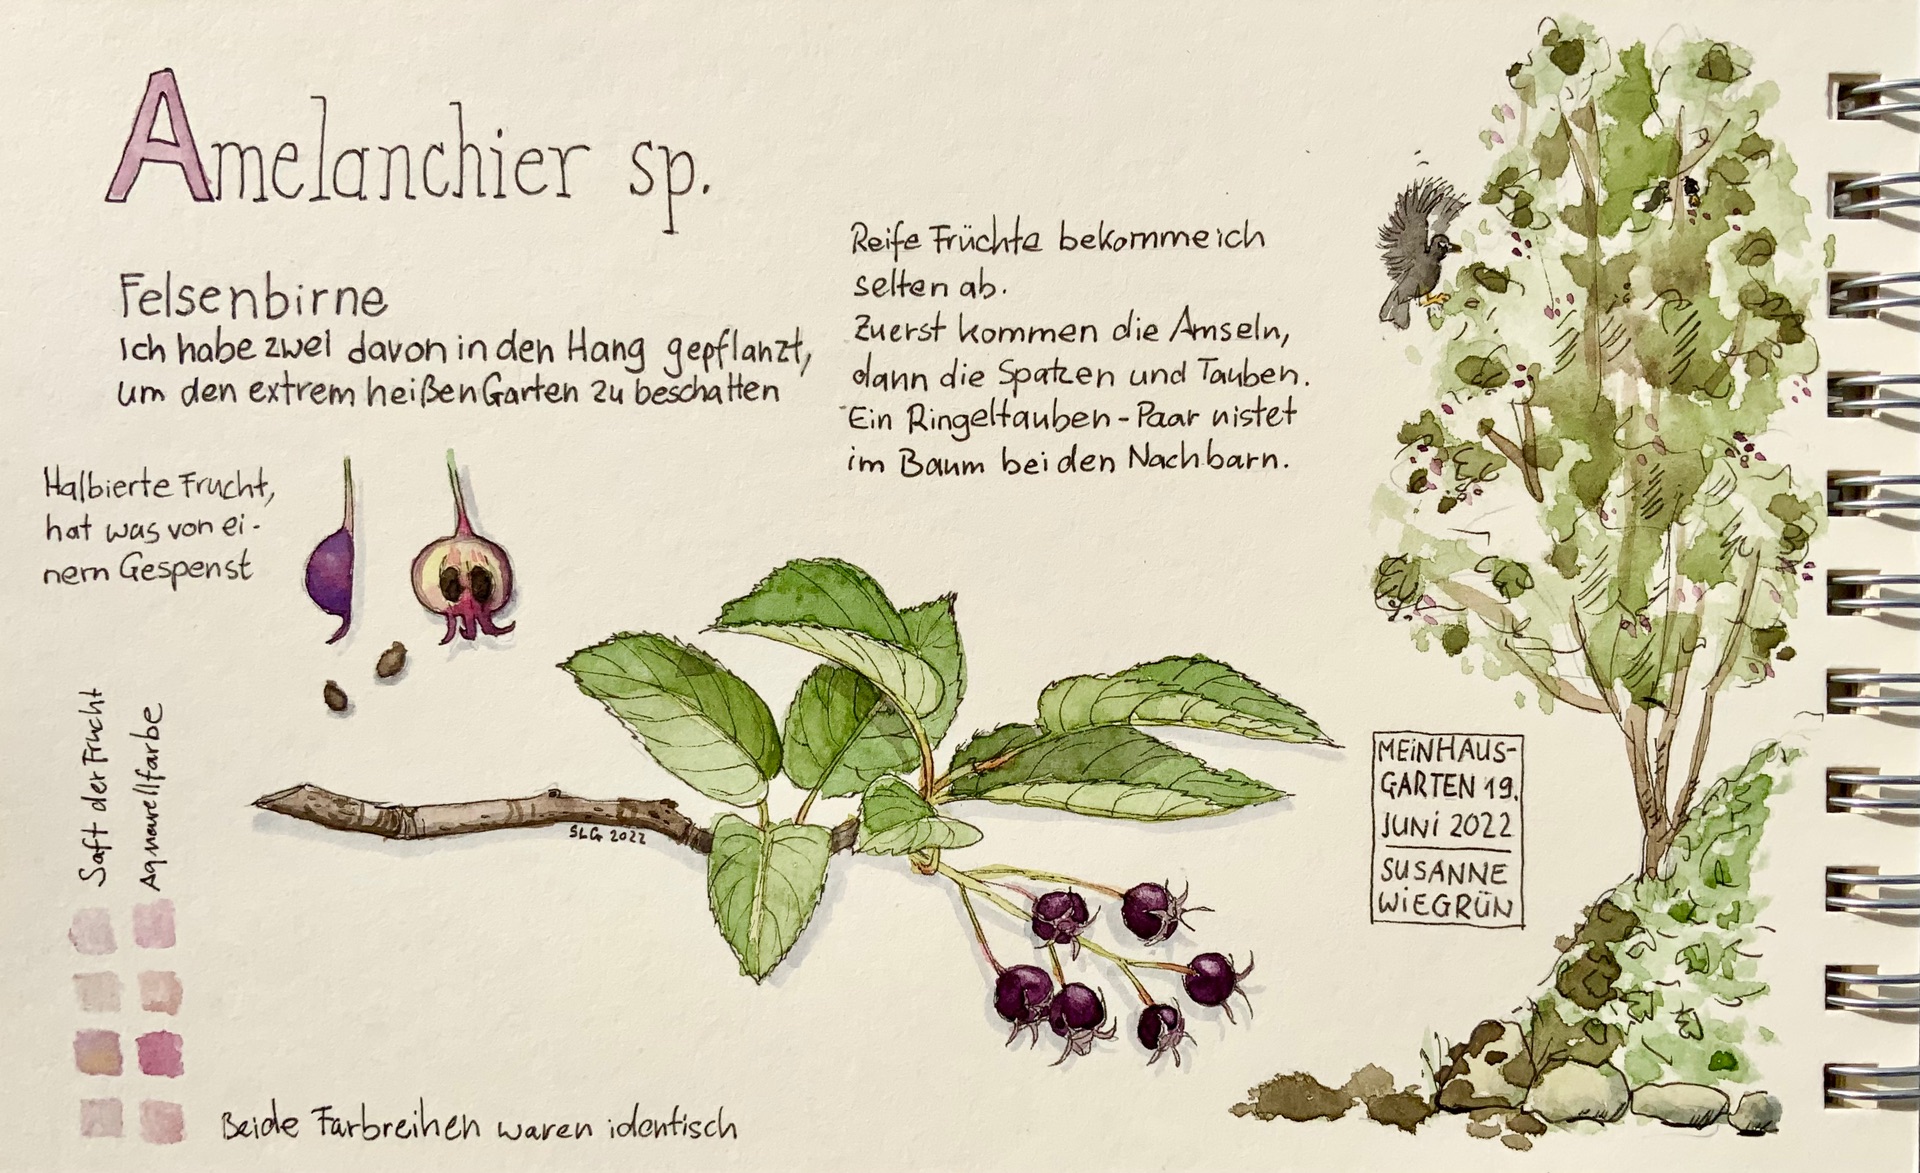 Amelanchier sp.
Felsenbirne
Ich habe zwei davon in den Hang gepflanzt,
um den extrem heißen Garten zu beschatten
Reife Früchte bekomme ich
selten ab.
Zuerst kommen die Amseln,
dann die Spatzen und Tauben.
Ein Ringeltauben-Paar nistet
im Baum bei den Nachbarn.
Halbierte Frucht,
hat was von ei-
nem Gespenst
Saft der Frucht
Aquarellfarbe
SLG 2022
MEIN HAUS-
GARTEN 19.
JUNI 2022
SUSANNE
WIEGRÜN
Beide Farbreihen waren identisch